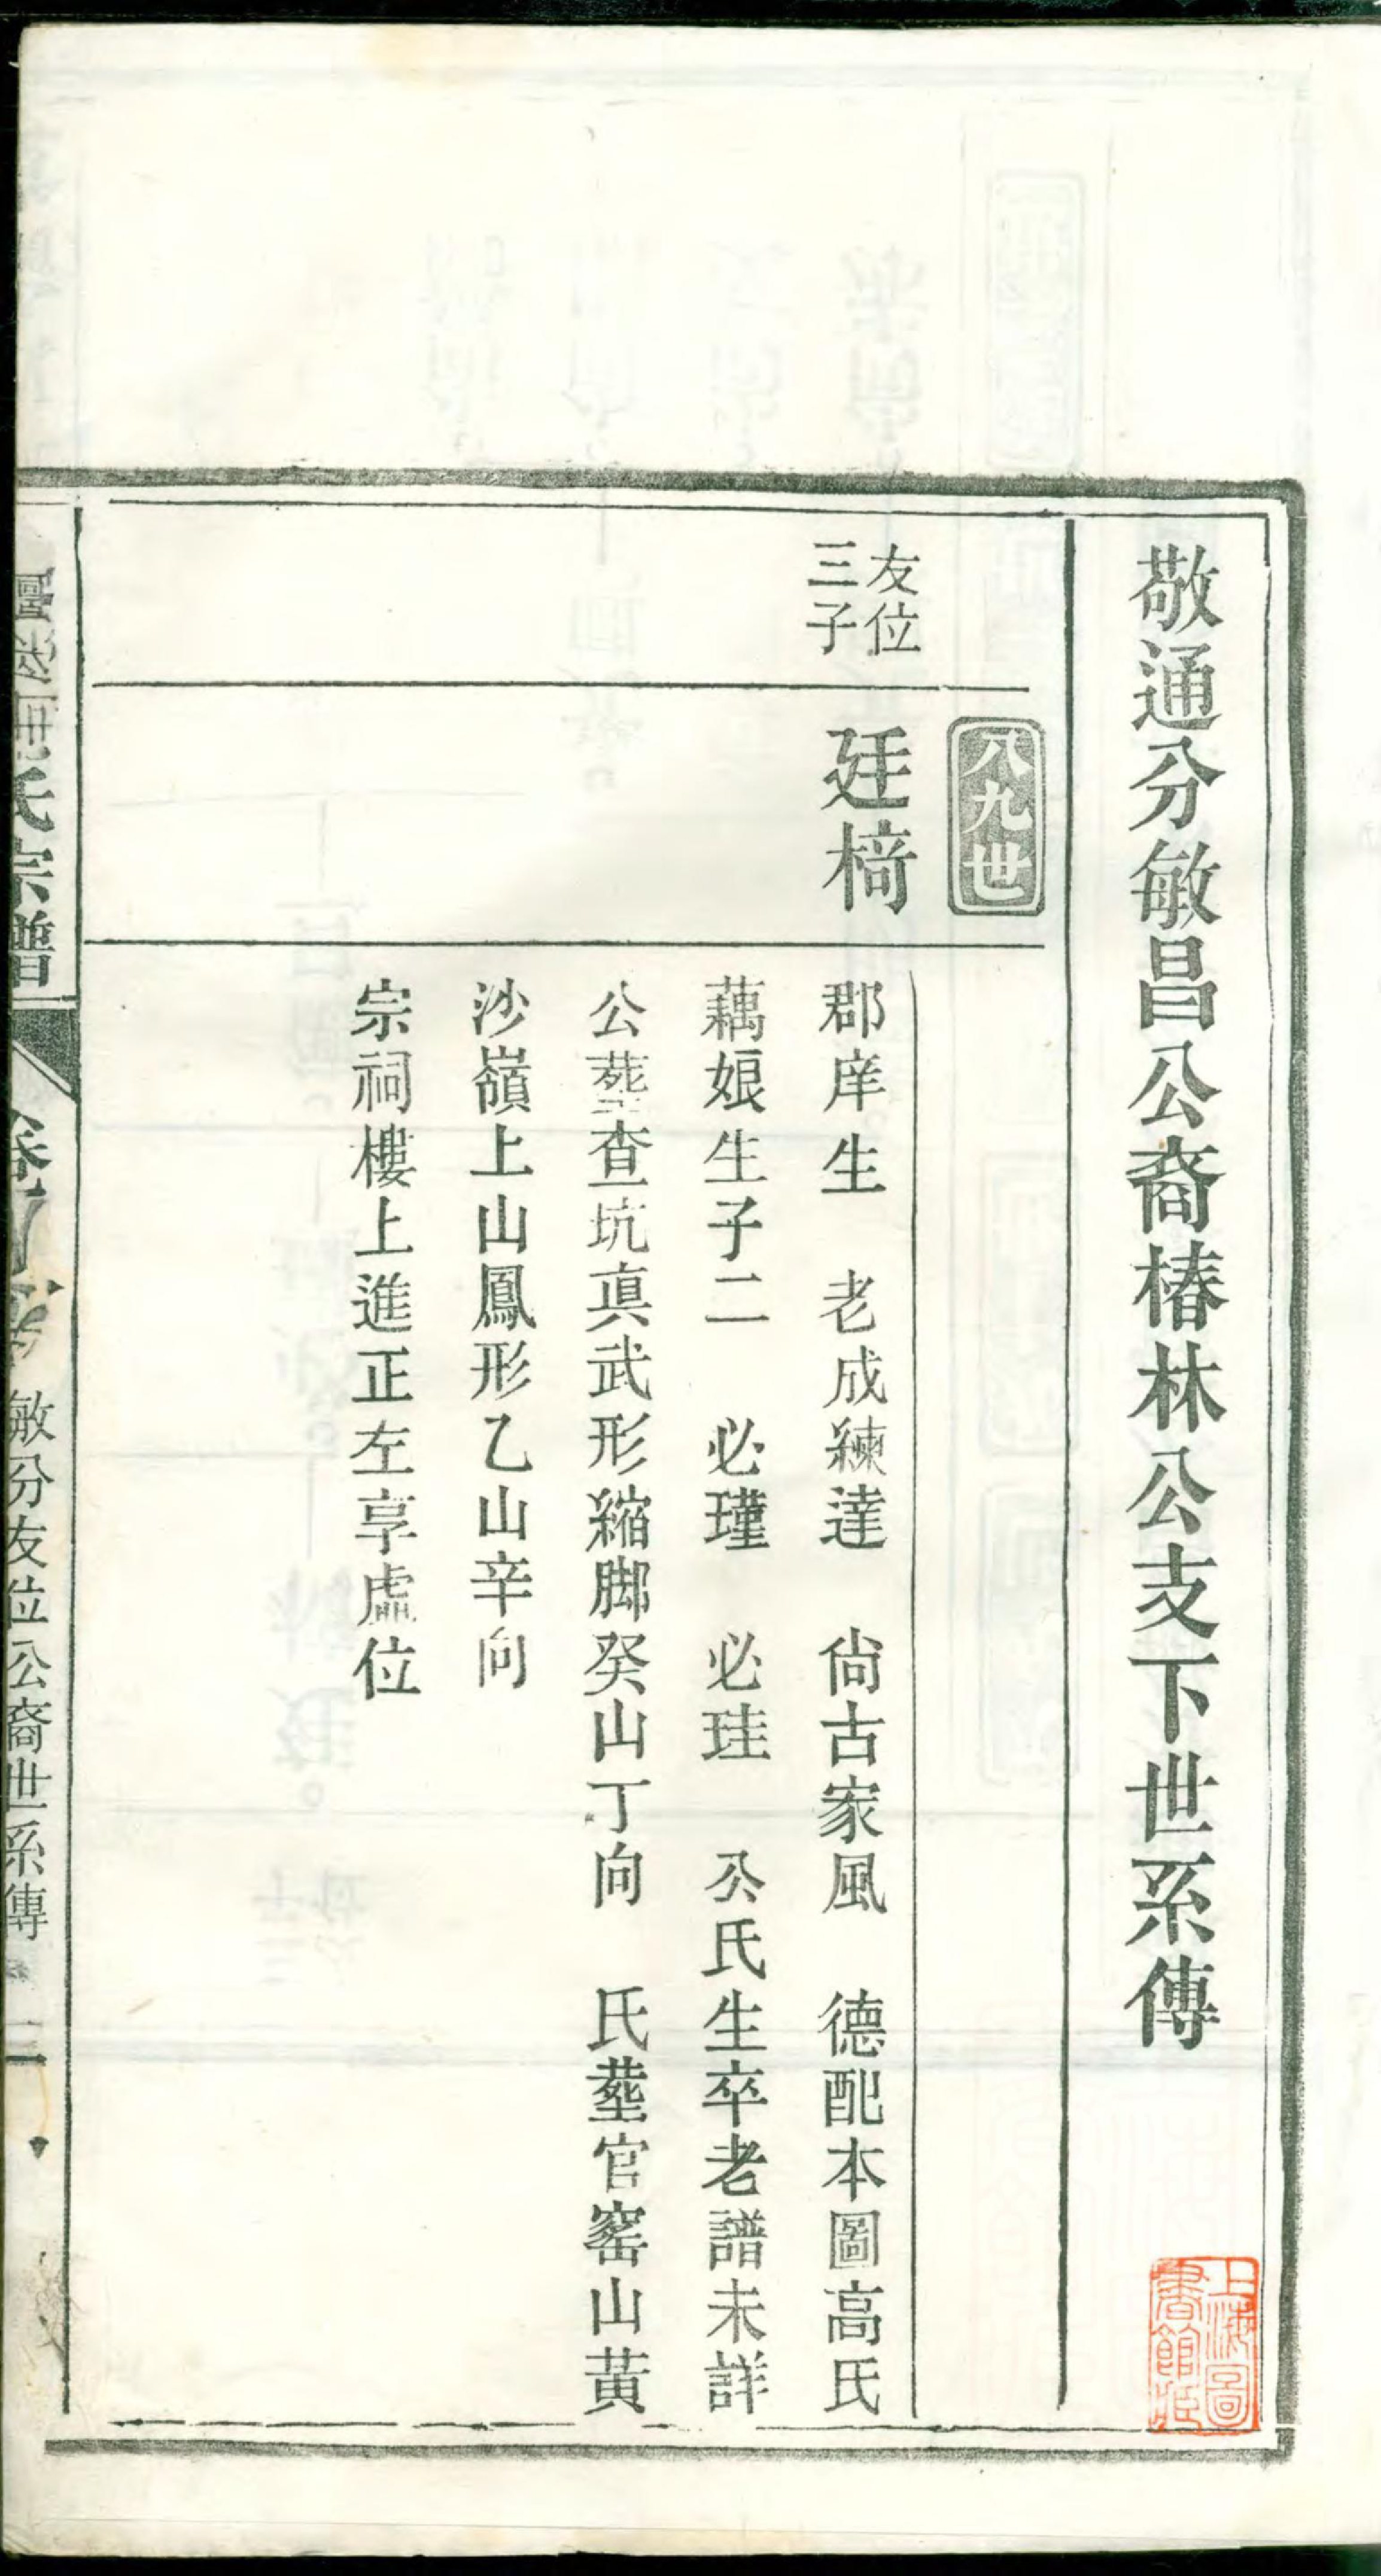 敬通分敏昌公裔椿林公支下世系傳
上海圖書館藏
八九世
友位
三子
廷椅
郡庠生　老成練達　尙古家風　德配本圖高氏
藕娘生子二　必瑾　必珪　公氏生卒老譜未詳
公塟查坑眞武形縮脚癸山丁向　氏塟官窰山黃
沙嶺上山鳳形乙山辛向
宗祠樓上進正左享虛位
氏宗譜
敏分友位公裔世系傳